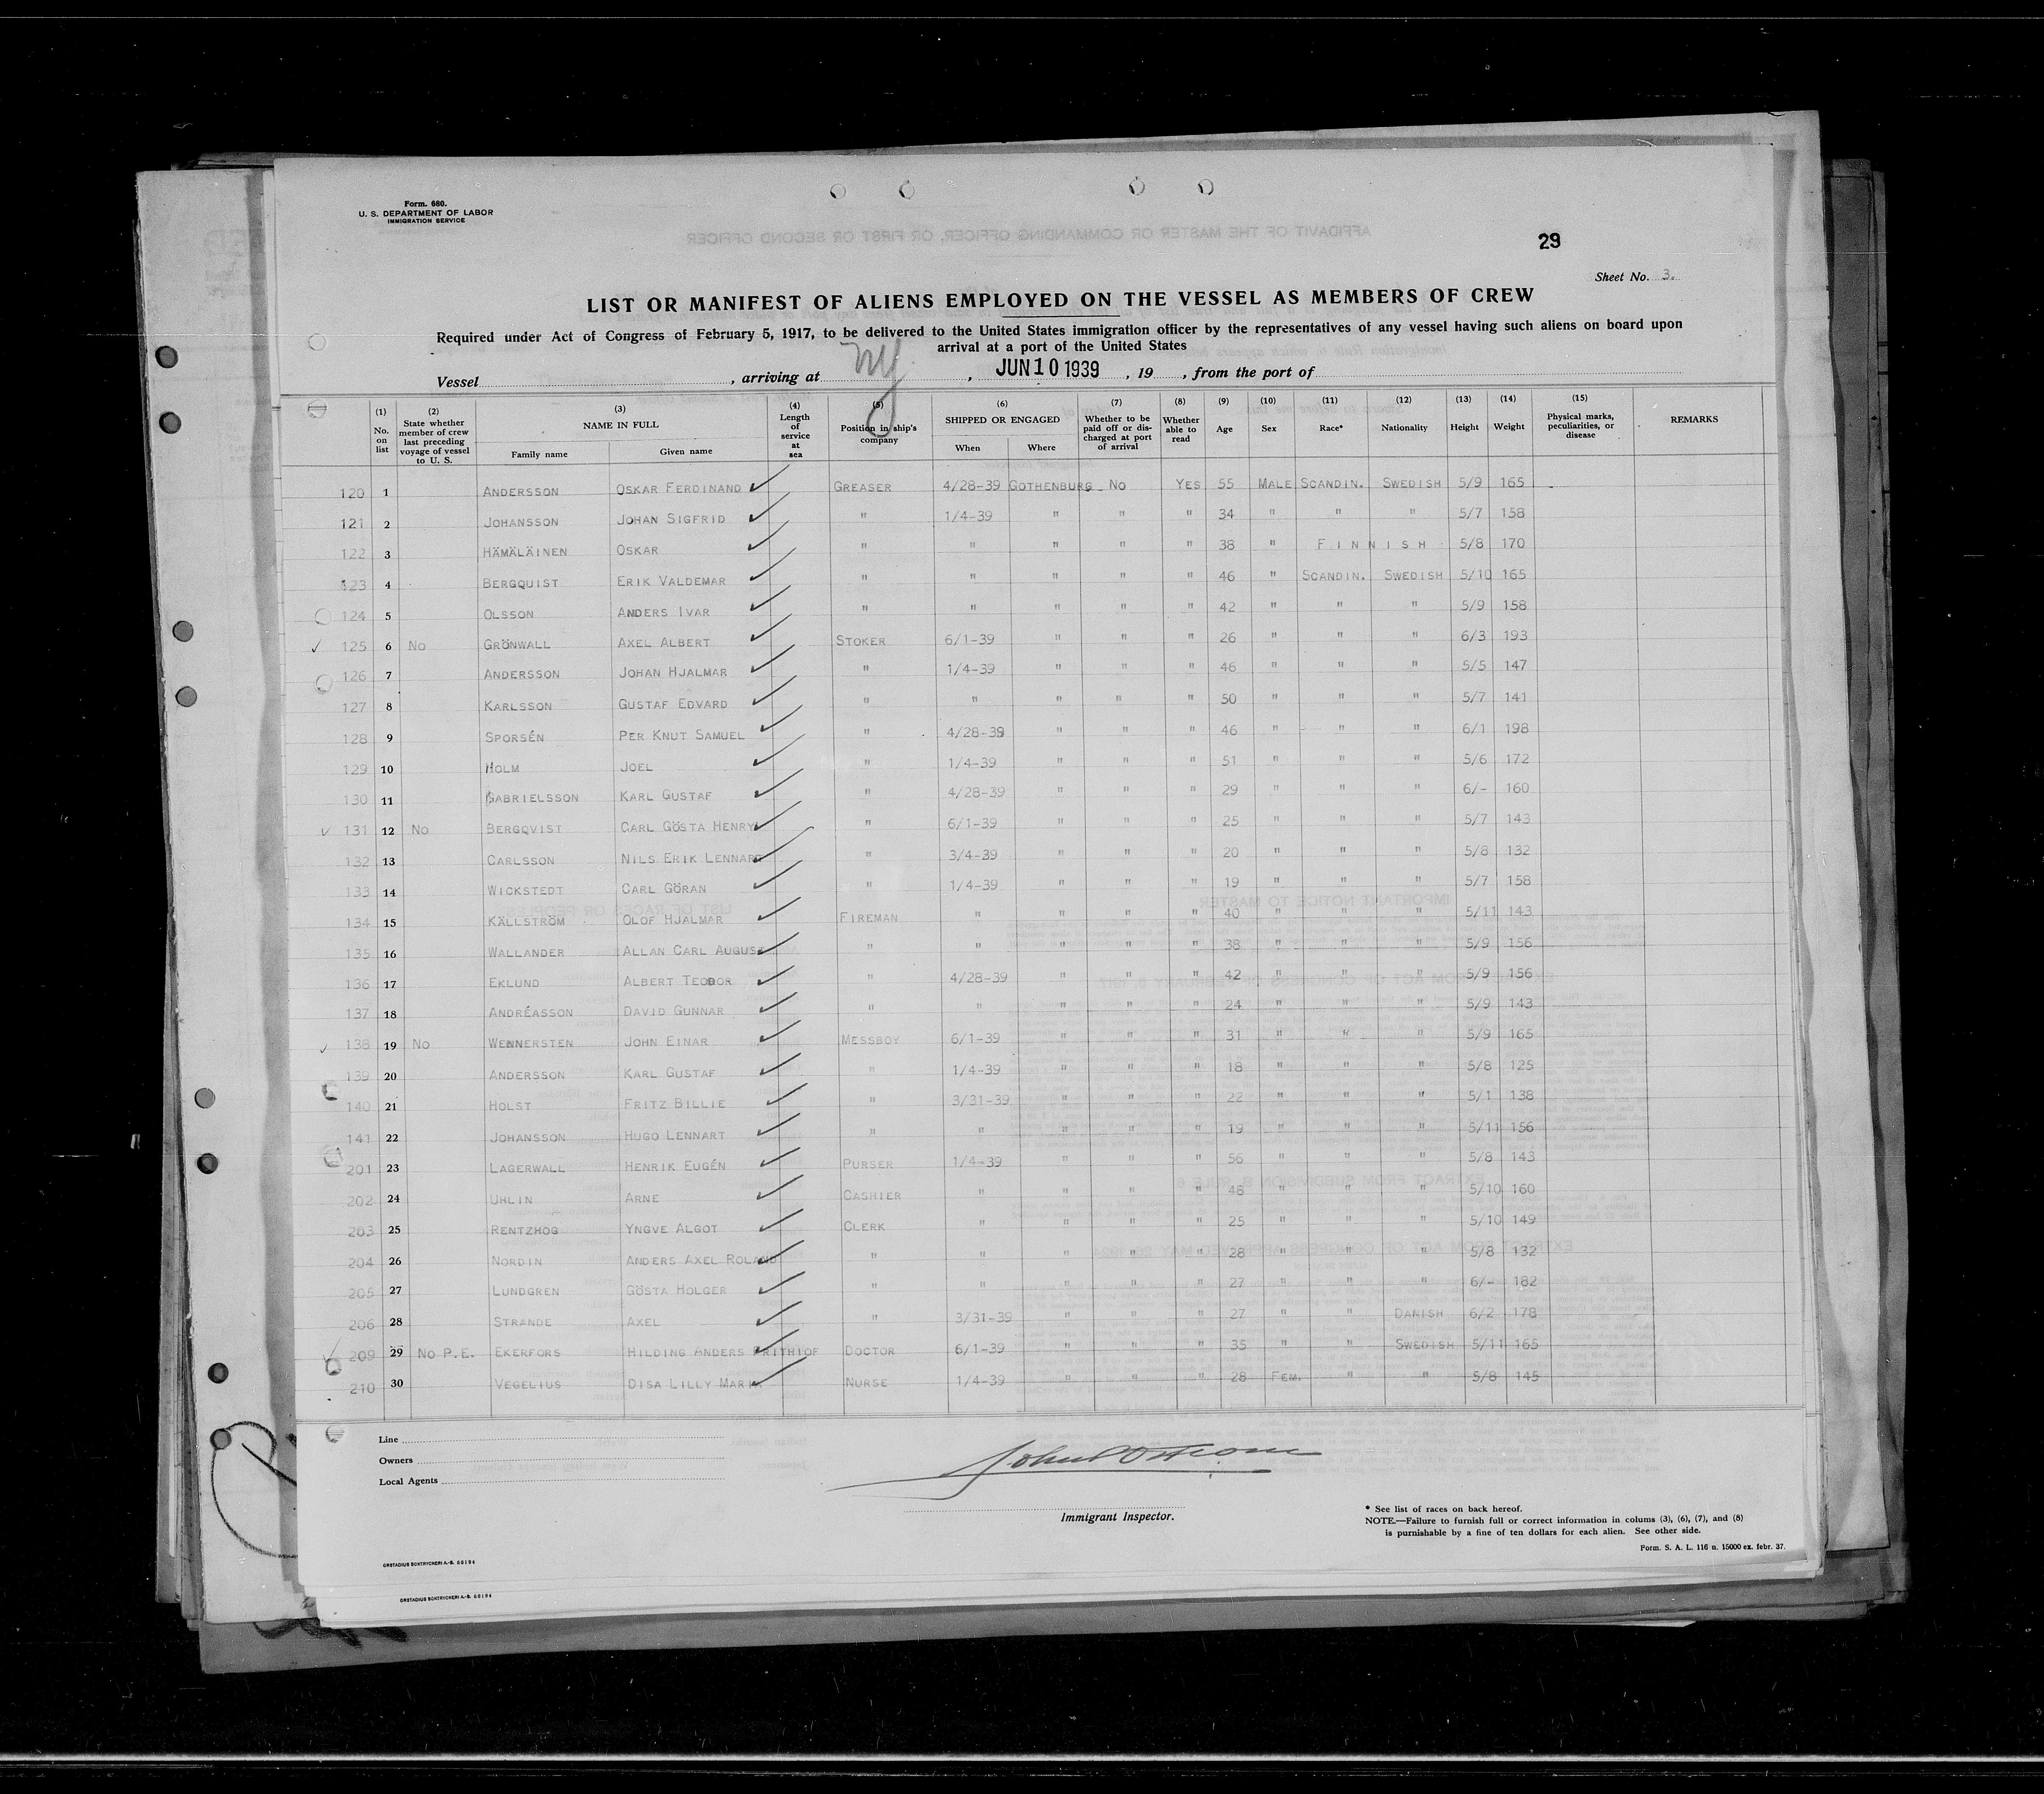 Form. 680.
U. S. DEPARTMENT OF LABOR
IMMIGRATION SERVICE
29
Sheet No. 3.
LIST OR MANIFEST OF ALIENS EMPLOYED ON THE VESSEL AS MEMBERS OF CREW
Required under Act of Congress of February 5, 1917, to be delivered to the United States immigration officer by the representatives of any vessel having such aliens on board upon
arrival at a port of the United States
Vessel , arriving at NY , JUN 10 1939 , 19 , from the port of
(1) No. on list (2) State whether member of crew last preceding voyage of vessel to U. S. (3) NAME IN FULL Family name Given name (4) Length of service at sea (5) Position in ship's company (6) SHIPPED OR ENGAGED When Where (7) Whether to be paid off or discharged at port of arrival (8) Whether able to read (9) Age (10) Sex (11) Race* (12) Nationality (13) Height (14) Weight (15) Physical marks, peculiarities, or disease REMARKS
120 1 ANDERSSON OSKAR FERDINAND GREASER 4/28-39 GOTHENBURG NO YES 55 MALE SCANDIN. SWEDISH 5/9 165
121 2 JOHANSSON JOHAN SIGFRID " 1/4-39 " " " 34 " " " 5/7 158
122 3 HÄMÄLÄINEN OSKAR " " " " " 38 " FINNISH 5/8 170
123 4 BERGQUIST ERIK VALDEMAR " " " " " 46 " SCANDIN. SWEDISH 5/10 165
124 5 OLSSON ANDERS IVAR " " " " " 42 " " " 5/9 158
125 6 NO GRÖNWALL AXEL ALBERT STOKER 6/1-39 " " " 26 " " " 6/3 193
126 7 ANDERSSON JOHAN HJALMAR " 1/4-39 " " " 46 " " " 5/5 147
127 8 KARLSSON GUSTAF EDVARD " " " " " 50 " " " 5/7 141
128 9 SPORSÉN PER KNUT SAMUEL " 4/28-39 " " " 46 " " " 6/1 198
129 10 HOLM JOEL " 1/4-39 " " " 51 " " " 5/6 172
130 11 GABRIELSSON KARL GUSTAF " 4/28-39 " " " 29 " " " 6/- 160
131 12 NO BERGQVIST CARL GÖSTA HENRY " 6/1-39 " " " 25 " " " 5/7 143
132 13 CARLSSON NILS ERIK LENNARD " 3/4-39 " " " 20 " " " 5/8 132
133 14 WICKSTEDT CARL GÖRAN " 1/4-39 " " " 19 " " " 5/7 158
134 15 KÄLLSTRÖM OLOF HJALMAR FIREMAN " " " " 40 " " " 5/11 143
135 16 WALLANDER ALLAN CARL AUGUST " " " " " 38 " " " 5/9 156
136 17 EKLUND ALBERT TEODOR " 4/28-39 " " " 42 " " " 5/9 156
137 18 ANDRÉASSON DAVID GUNNAR " " " " " 24 " " " 5/9 143
138 19 NO WENNERSTEN JOHN EINAR MESSBOY 6/1-39 " " " 31 " " " 5/9 165
139 20 ANDERSSON KARL GUSTAF " 1/4-39 " " " 18 " " " 5/8 125
140 21 HOLST FRITZ BILLIE " 3/31-39 " " " 22 " " " 5/1 138
141 22 JOHANSSON HUGO LENNART " " " " " 19 " " " 5/11 156
201 23 LAGERWALL HENRIK EUGÉN PURSER 1/4-39 " " " 56 " " " 5/8 143
202 24 UHLIN ARNE CASHIER " " " " 48 " " " 5/10 160
203 25 RENTZHOG YNGVE ALGOT CLERK " " " " 25 " " " 5/10 149
204 26 NORDIN ANDERS AXEL ROLAND " " " " " 28 " " " 5/8 132
205 27 LUNDGREN GÖSTA HOLGER " " " " " 27 " " " 6/- 182
206 28 STRANDE AXEL " 3/31-39 " " " 27 " " DANISH 6/2 178
209 29 NO P.E. EKERFORS HILDING ANDERS FRITHIOF DOCTOR 6/1-39 " " " 35 " " SWEDISH 5/11 165
210 30 VEGELIUS DISA LILLY MARIA NURSE 1/4-39 " " " 28 FEM. " " 5/8 145
Line
Owners
Local Agents
Immigrant Inspector.
* See list of races on back hereof.
NOTE.—Failure to furnish full or correct information in colums (3), (6), (7), and (8)
is punishable by a fine of ten dollars for each alien. See other side.
Form. S. A. L. 116 n. 15000 ex. febr. 37.